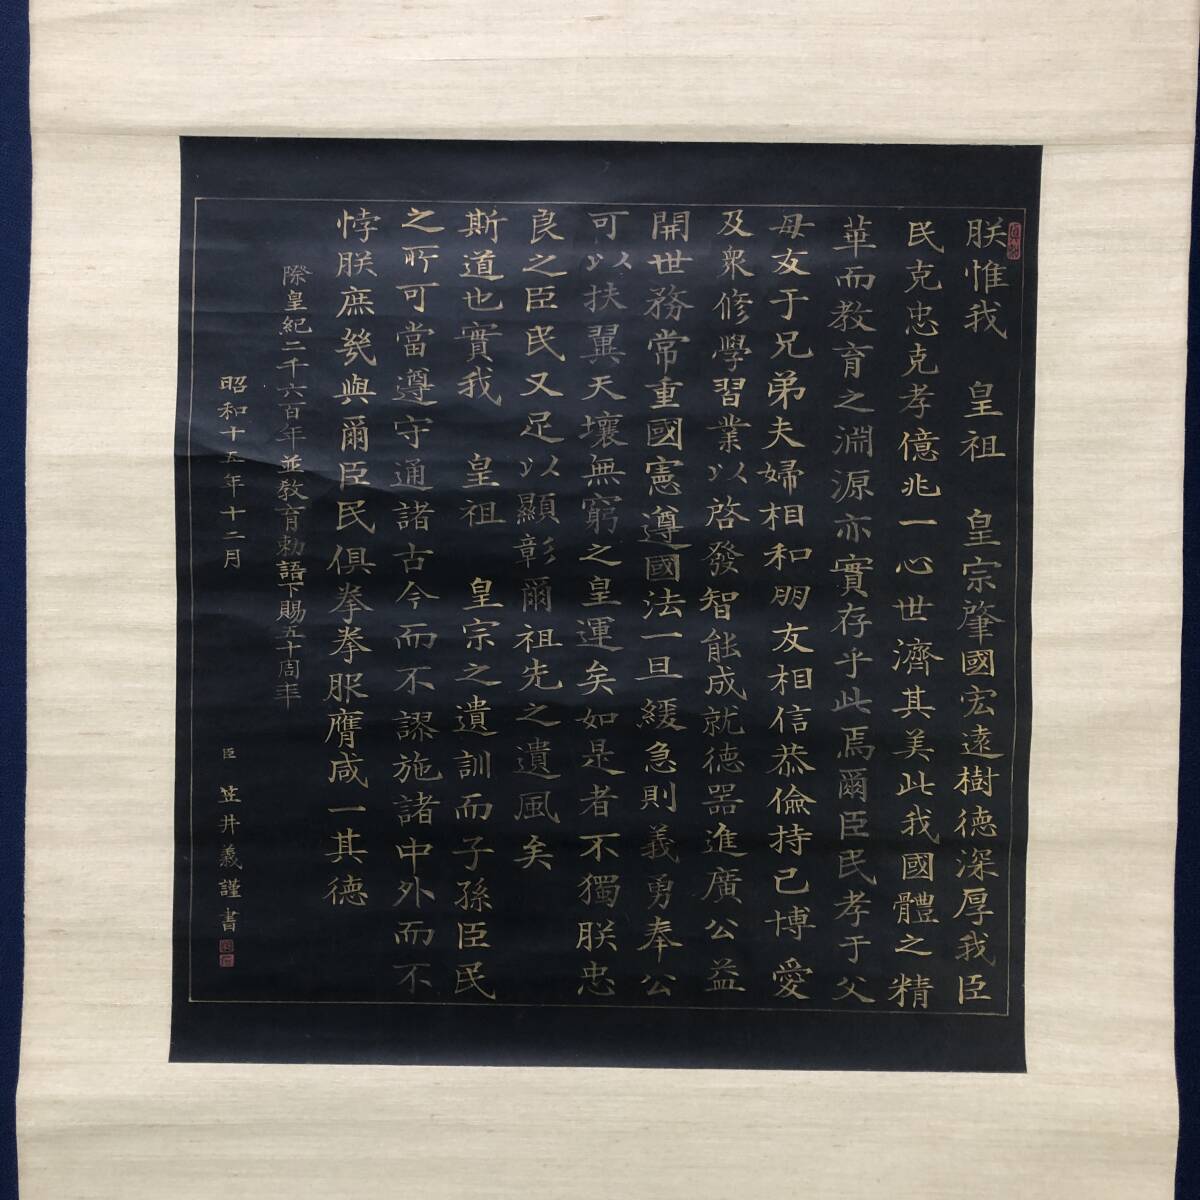 朕惟我　皇祖　皇宗肇國宏遠樹德深厚我臣
民克忠克孝億兆一心世濟其美此我國體之精
華而教育之淵源亦實存乎此焉爾臣民孝于父
母友于兄弟夫婦相和朋友相信恭儉持己博愛
及衆修學習業以啓發智能成就德器進廣公益
開世務常重國憲遵國法一旦緩急則義勇奉公
可以扶翼天壤無窮之皇運矣如是者不獨朕忠
良之臣民又足以顯彰爾祖先之遺風矣
斯道也實我　皇祖　皇宗之遺訓而子孫臣民
之所可當遵守通諸古今而不謬施諸中外而不
悖朕庶幾與爾臣民俱拳拳服膺咸一其德
際皇紀二千六百年並教育勅語下賜五十周年
昭和十五年十二月　臣　笠井義謹書